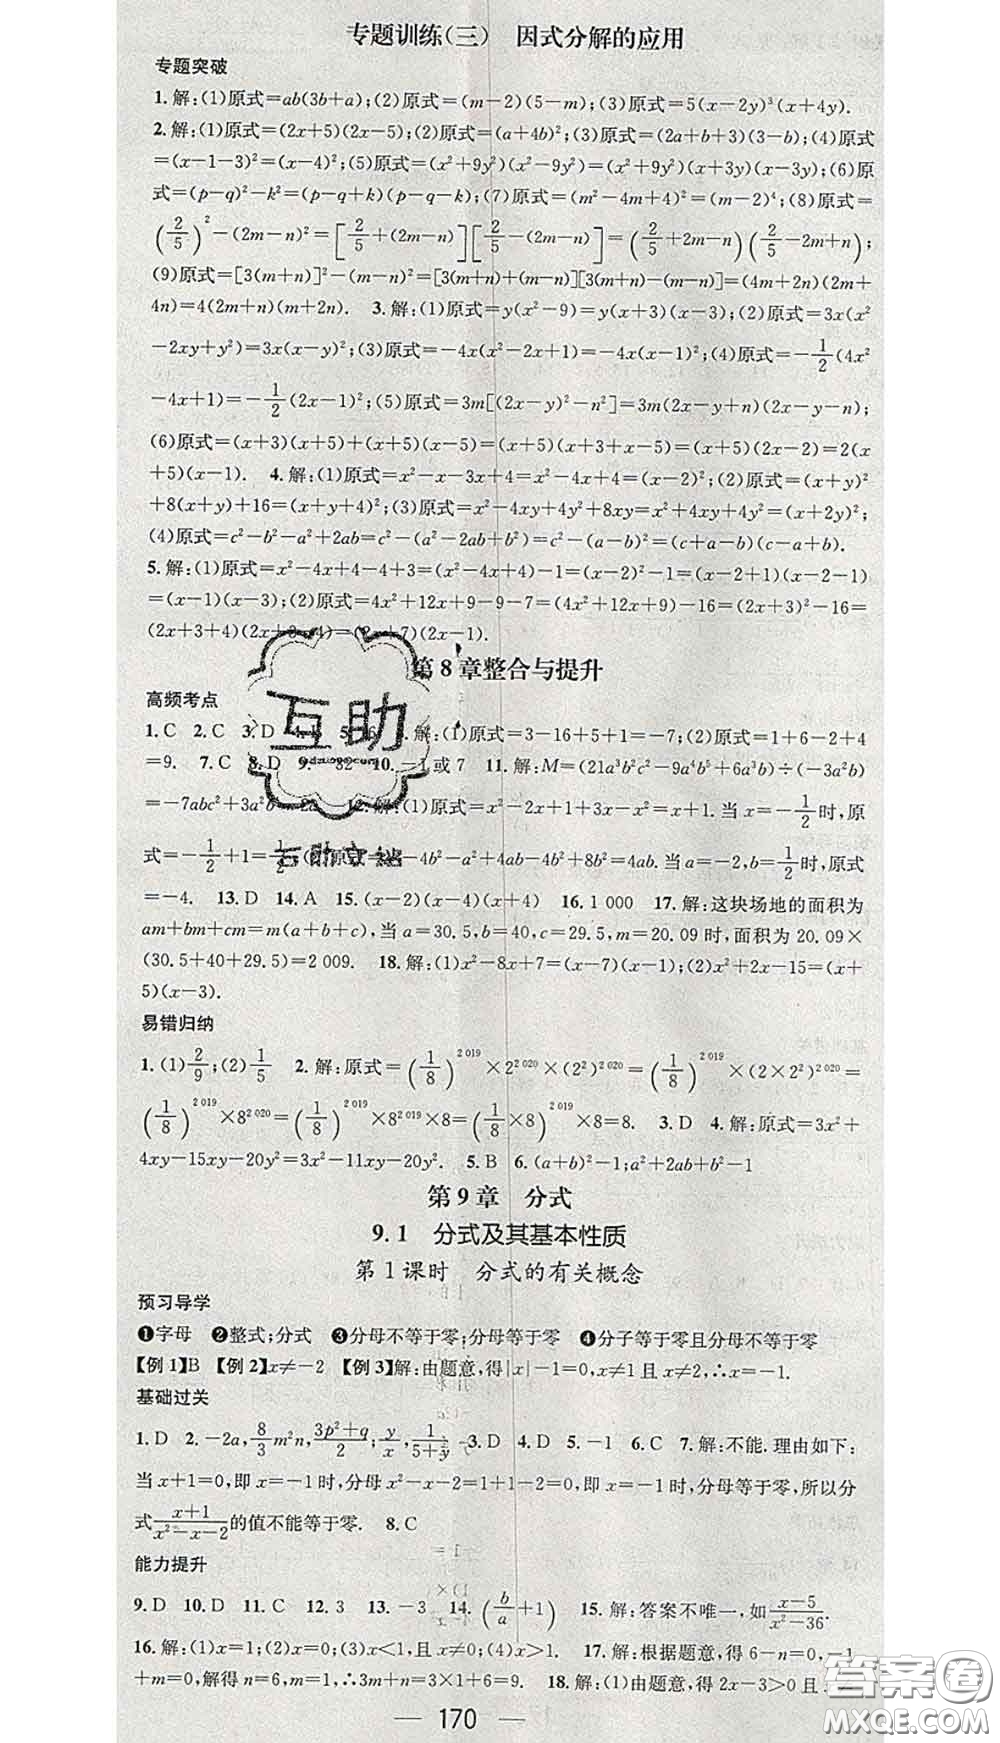 专题训练(三)　因式分解的应用
专题突破
1.解:(1)原式=ab(3b+a);(2)原式=(m-2)(5-m);(3)原式=5(x-2y)³(x+4y).
2.解:(1)原式=(2x+5)(2x-5);(2)原式=(a+4b)²;(3)原式=(2a+b+3)(3-b);(4)原式
=(x-1-3)²=(x-4)²;(5)原式=(x²+9y²)(x²-9y²)=(x²+9y²)(x+3y)(x-3y);(6)原
式=(p-q)²-k²=(p-q+k)(p-q-k);(7)原式=(m²-4m+4)²=(m-2)⁴;(8)原式=
(2/5)²-(2m-n)²=[2/5+(2m-n)][2/5-(2m-n)]=(2/5+2m-n)(2/5-2m+n);
(9)原式=[3(m+n)]²-(m-n)²=[3(m+n)+(m-n)][3(m+n)-(m-n)]=(4m+2n)(2m+
4n)=4(2m+n)(m+2n). 3.解:(1)原式=y(x²-9)=y(x+3)(x-3);(2)原式=3x(x²
-2xy+y²)=3x(x-y)²;(3)原式=-4x(x²-2x+1)=-4x(x-1)²;(4)原式=-1/2(4x²
-4x+1)=-1/2(2x-1)²;(5)原式=3m[(2x-y)²-n²]=3m(2x-y+n)(2x-y-n);
(6)原式=(x+3)(x+5)+(x+5)(x-5)=(x+5)(x+3+x-5)=(x+5)(2x-2)=2(x
+5)(x-1). 4.解:(1)原式=x²-x-3x+4=x²-4x+4=(x-2)²;(2)原式=(x+y)²
+8(x+y)+16=(x+y+4)²;(3)原式=x²-4xy+4y²+8xy=x²+4xy+4y²=(x+2y)²;
(4)原式=c²-b²-a²+2ab=c²-(a²-2ab+b²)=c²-(a-b)²=(c+a-b)(c-a+b).
5.解:(1)原式=x²-4x+4-4+3=(x²-4x+4)-1=(x-2)²-1=(x-2+1)(x-2-1)
=(x-1)(x-3);(2)原式=4x²+12x+9-9-7=(4x²+12x+9)-16=(2x+3)²-16=
(2x+3+4)(2x+3-4)=(2x+7)(2x-1).
第8章整合与提升
高频考点
1.C 2.C 3.D 解:(1)原式=3-16+5+1=-7;(2)原式=1+6-2+4
=9. 7.C 8.D 9. 10.-1或7 11.解:M=(21a³b²c-9a⁴b⁵+6a³b)÷(-3a²b)
=-7abc²+3a²b 12.解:(1)原式=x²-2x+1+3x-x²=x+1.当x=-1/2时,原
式=-1/2+1=1/2;(2)原式 -4b²-a²+4ab-4b²+8b²=4ab.当a=-2,b=1/2时,原式
=-4. 13.D 14.A 15.(x-2)(x-4)(x+4) 16.1 000 17.解:这块场地的面积为
am+bm+cm=m(a+b+c),当a=30.5,b=40,c=29.5,m=20.09时,面积为20.09×
(30.5+40+29.5)=2 009. 18.解:(1)x²-8x+7=(x-7)(x-1);(2)x²+2x-15=(x+
5)(x-3).
易错归纳
1.(1)2/9;(2)1/5 2.解:原式=(1/8)²⁰¹⁹×2²⁰²⁰×(2²)²⁰²⁰=(1/8)²⁰¹⁹×(2×2²)²⁰²⁰=
(1/8)²⁰¹⁹×8²⁰²⁰=(1/8)²⁰¹⁹×8²⁰¹⁹×8=(1/8×8)²⁰¹⁹×8=8. 3.D 4.解:原式=3x²+
4xy-15xy-20y²=3x²-11xy-20y². 5.B 6.(a+b)²-1;a²+2ab+b²-1
第9章　分式
9.1　分式及其基本性质
第1课时　分式的有关概念
预习导学
❶字母 ❷整式;分式 ❸分母不等于零;分母等于零 ❹分子等于零且分母不等于零
【例1】B 【例2】x≠-2 【例3】解:由题意,得|x|-1=0,x≠1且x≠-1.
基础过关
1.D 2.-2a,8/3m²n,(3p²+q)/2;y/x,1/(5+y) 3.D 4.D 5.-1 6.C 7.解:不能.理由如下:
当x+1=0,即x=-1时,分母x²-x-2=1+1-2=0,即x=-1时,分母等于零,所以分
式(x+1)/(x²-x-2)的值不能等于零. 8.C
能力提升
9.D 10.D 11.C 12.3 13.-3 14.(b/a+1) 15.解:答案不唯一,如(x-5)/(x²-36).
16.解:(1)x=1;(2)x=0;(3)x<1,且x≠0;(4)x>1. 17.解:根据题意,得6-n=0,-1
+m=0,解得n=6,m=1,∴3m+n=3×1+6=9. 18.解:(1)由题意,得2x-3>0且
170
互助
互助文站
答案圈
MXQE.COM